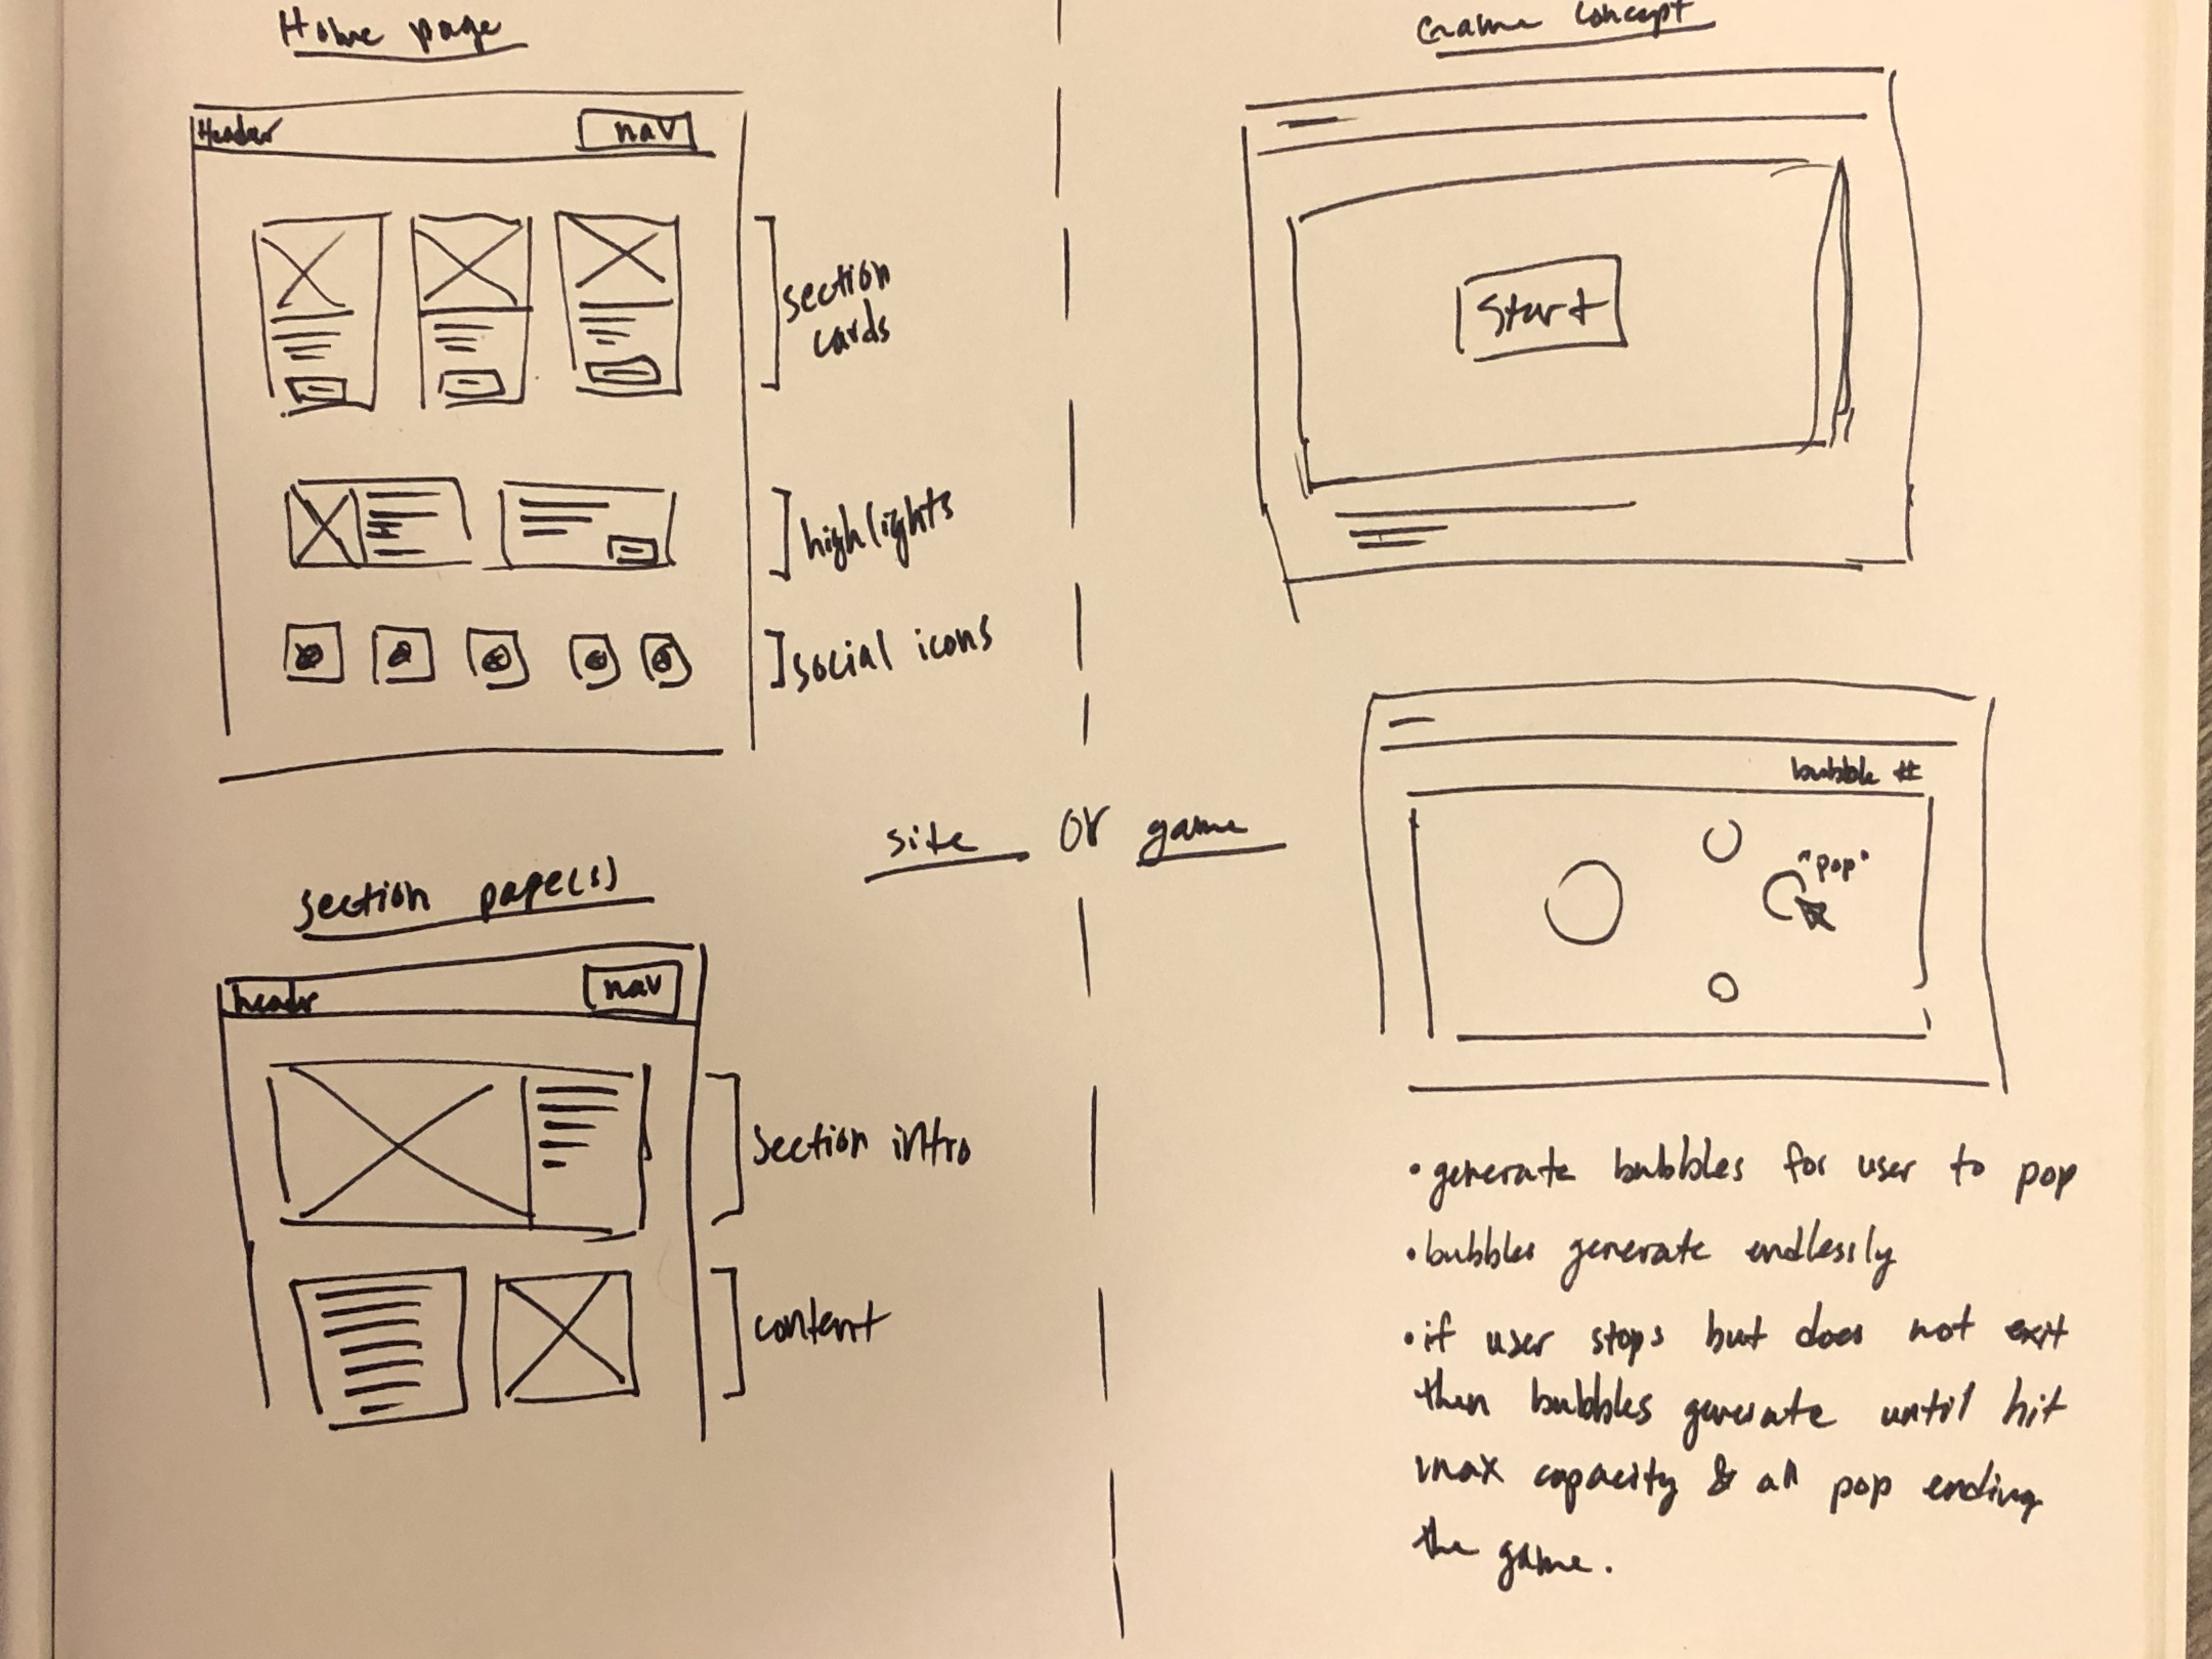 Home page
Header
nav
section
cards
highlights
social icons
section page(s)
header
nav
section intro
content
site or game
Game Concept
Start
bubble #
"pop"
• generate bubbles for user to pop
• bubbles generate endlessly
• if user stops but does not exit
then bubbles generate until hit
max capacity & all pop ending
the game.